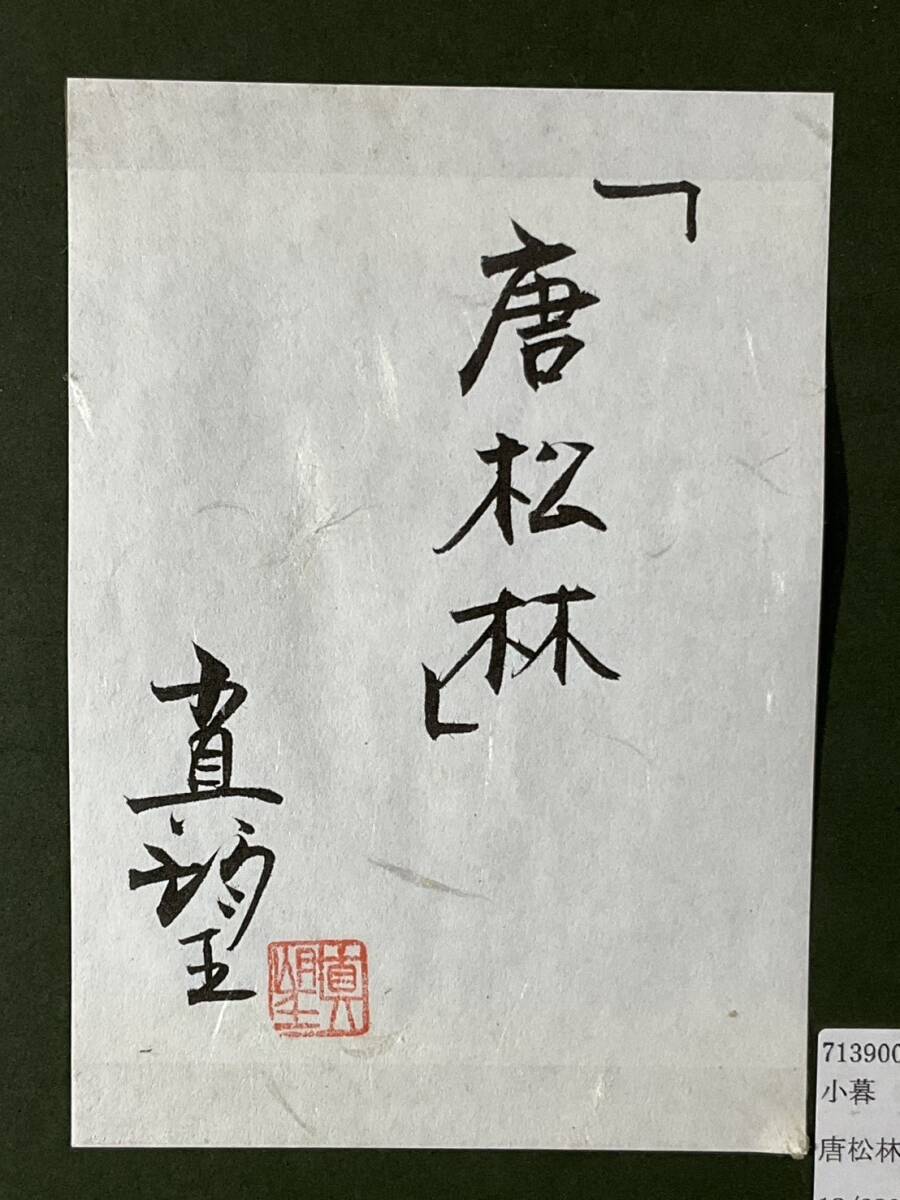 「唐松林」
真望
真望
713900
小暮
唐松林